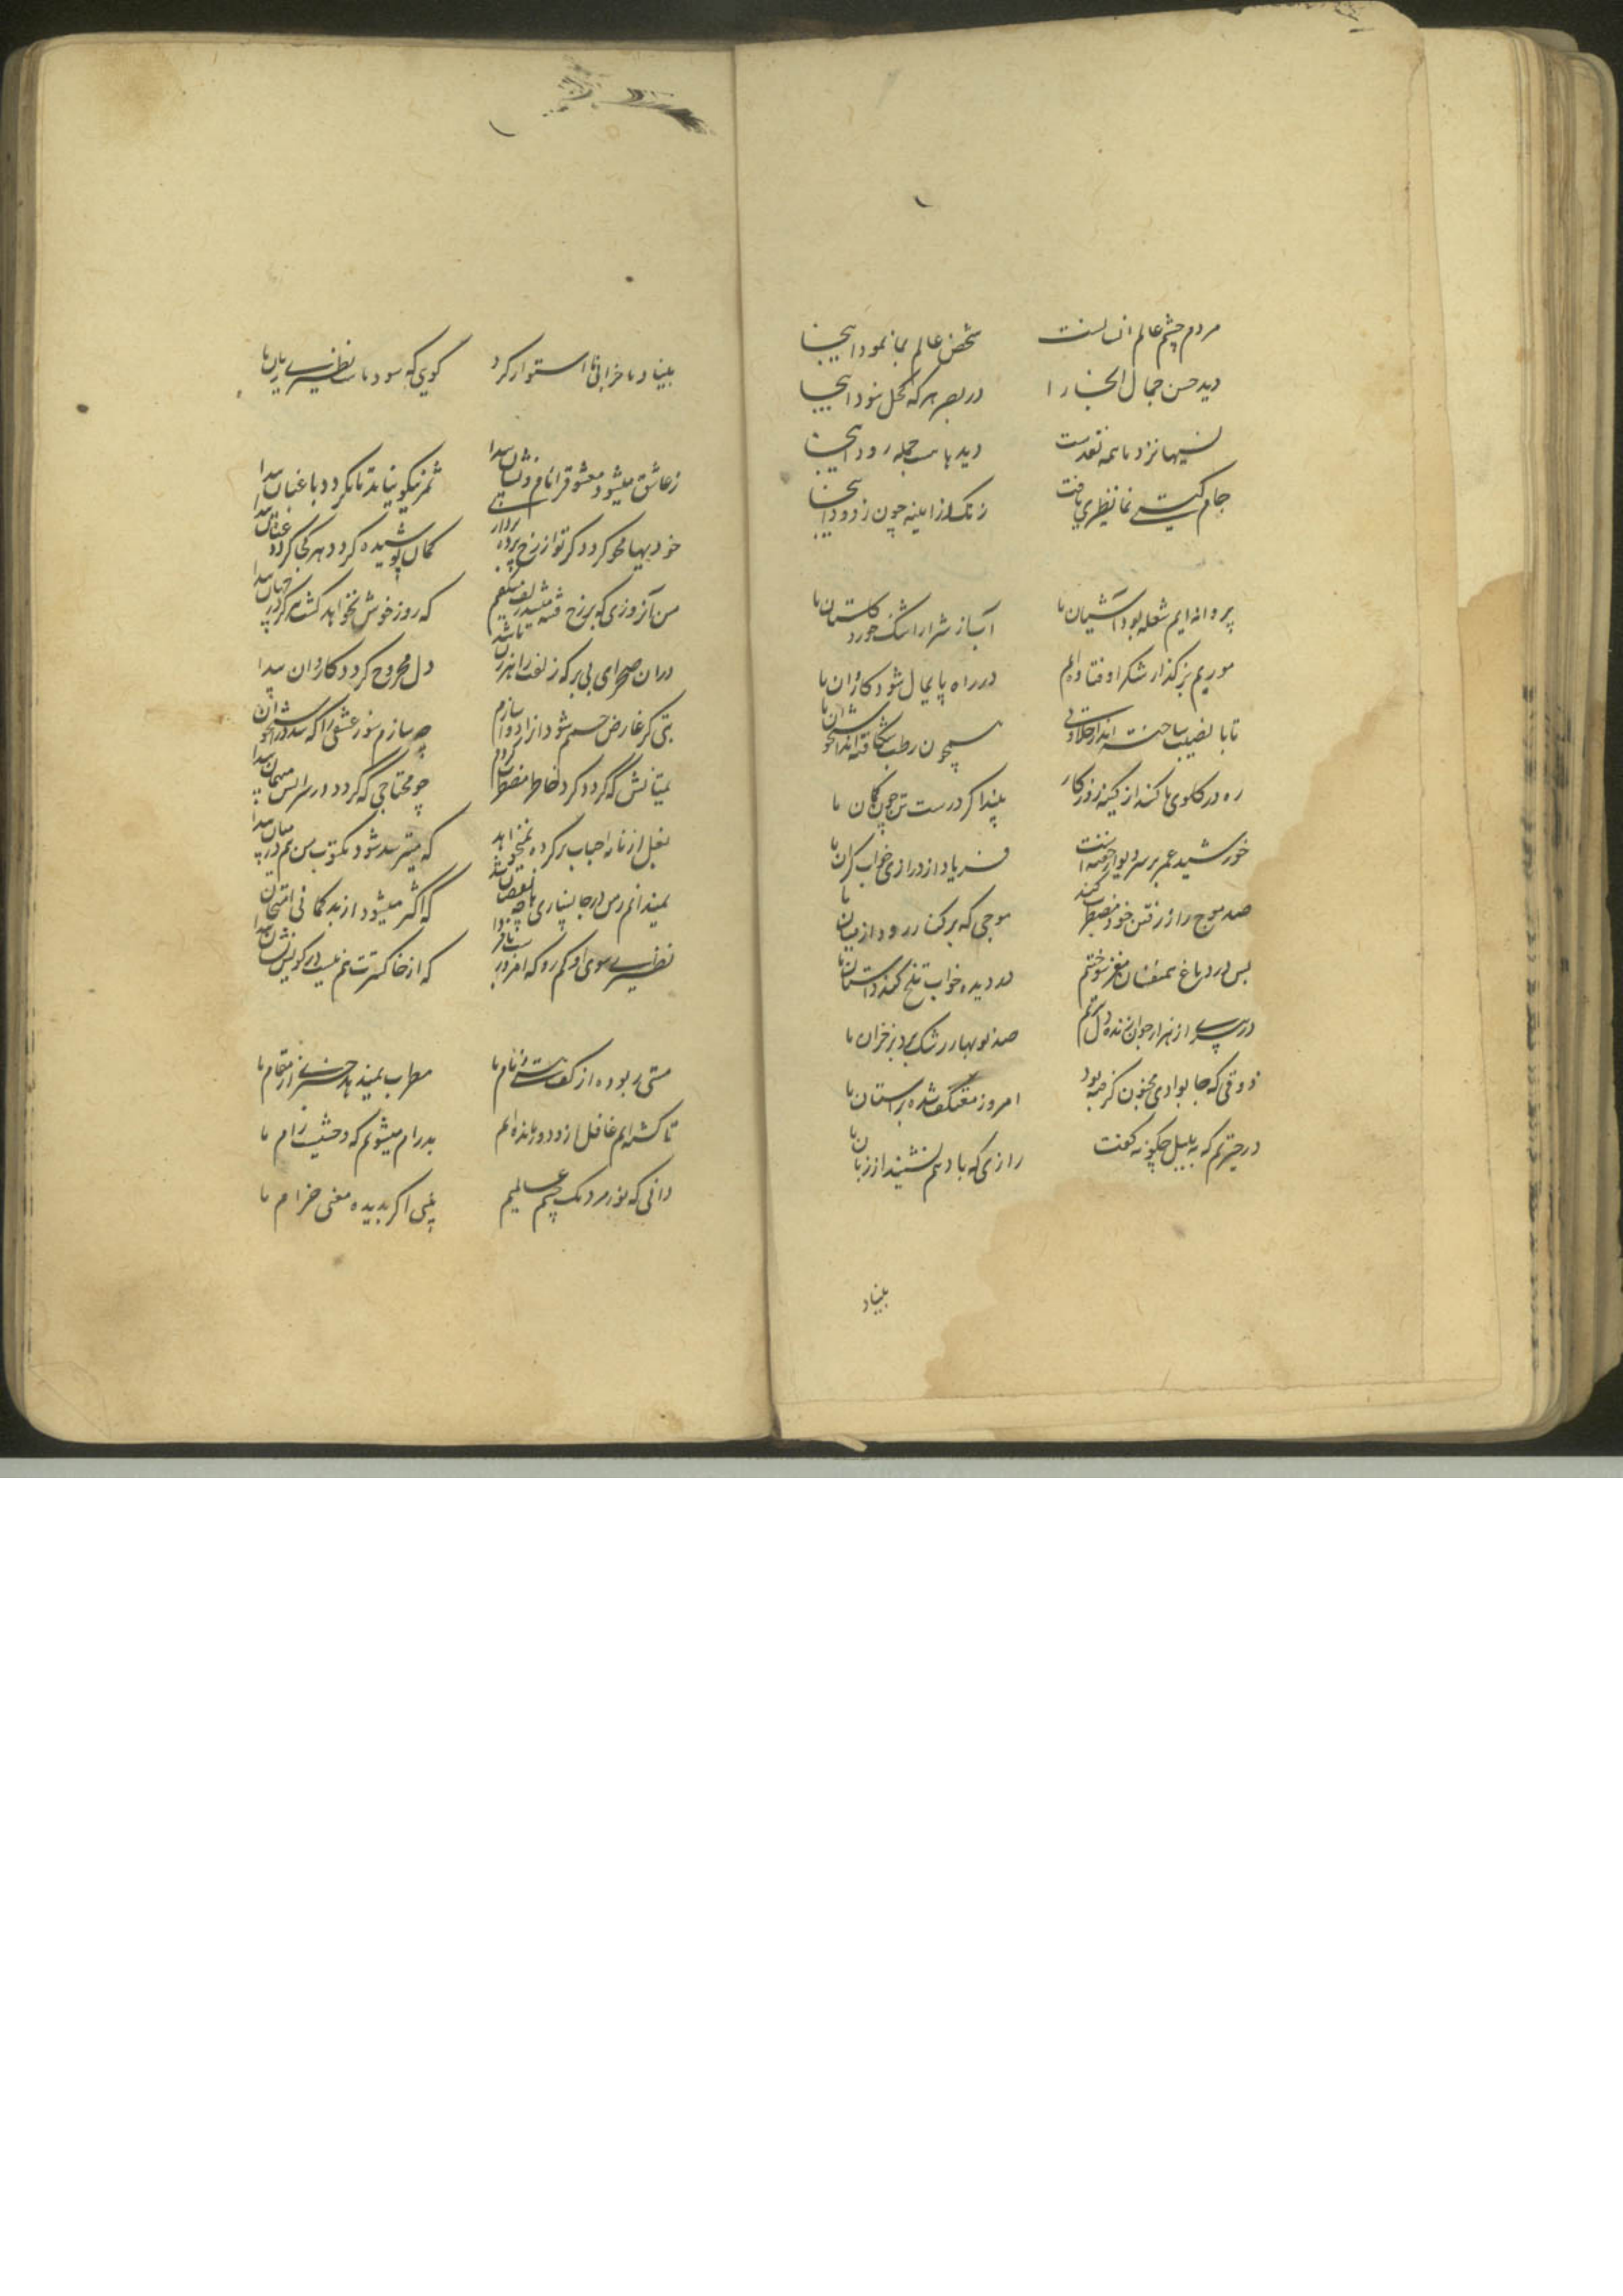 مردم چشم عالم انسانست شخص عالم بما نمود اینجا
دید حسن جمال آنجا را در بصر هر که کحل سود اینجا
نسیها نزد ما همه نقدست دید باست جمله رود اینجا
جام گیتی نما نظیری یافت زنگ از اینه چون زدود اینجا
پروانه ایم شعله بود آشیان ما آب از شرار اشک خورد گلستان ما
موریم بر گذار شکر اوفتاده ایم در راه پایمال شود کاروان ما
تا با نصیب ساخته اند از حلاوتی همچون رطب شکافته اند استخوان ما
ره در گلوی ما کند از کینه روزگار بیند اگر درست تر چون کمان ما
خورشید عمر بر سر دیوار و خفته است فریاد از درازی خواب گران ما
صد موج را ز رفتن خود مضطرب کند موجی که بر کنار رود از میان ما
بس در دماغ همنفسان مغز سوختم در دیده خواب تلخ کند داستان ما
در پیری از هزار جوان زنده دل تریم صد نوبهار رشک برد بر خزان ما
ذوقی که جا بوادی مجنون گرفته بود امروز معتکف شده بر آستان ما
در حیرتم که به بلبل چگونه گفت رازی که باد هم نشنید از زبان ما
بنیاد
بنیاد ما خرابی ما استوار کرد گوی که سود ماست نظیری زیان ما
ز عاشق میشود معشوق را نام و نشان پیدا ثمر نیکو نیاید تا نگردد باغبان پیدا
خودیها محو گردد گر تو از رخ پرده برداری گمان پوشیده گردد هر کجا گردد عیان پیدا
من آنروزی که بر رخ فتنه شد زلف میگفتم که روز خوش نخواهد گشت دیگر در جهان پیدا
دران صحرای بی بر که زلفت راهزن باشد دل مجروح گردد کاروان پیدا
بتی کز عارض چشم شود از دور سازم چه سازم سوز عشقی را که شد در استخوان پیدا
نمیتانش که گردد گرد خاطر مضطرب گردم چو محتاجی که گردد در سرایش میهمان پیدا
بغل از نامه احباب پر کرده نمیخواهد که میترسد شود مکتوب من هم در میان پیدا
نمیدانم ز من در جانسپاری ها چه نقصان شد که اکثر میشود از بدگمانی امتحان پیدا
نظیری سوی او کم رو که امروز که از خاکسترت هم نیست در کویش نشان پیدا
مستی ربوده از کف هستی زمام ما مطرب نمیدهد خبری از مقام ما
تا گشته ایم غافل ازو دور مانده ایم بد رام میشویم که وحشیست رام ما
دانی که نور مردمک چشم عالمیم بینی اگر بدیده معنی خرام ما